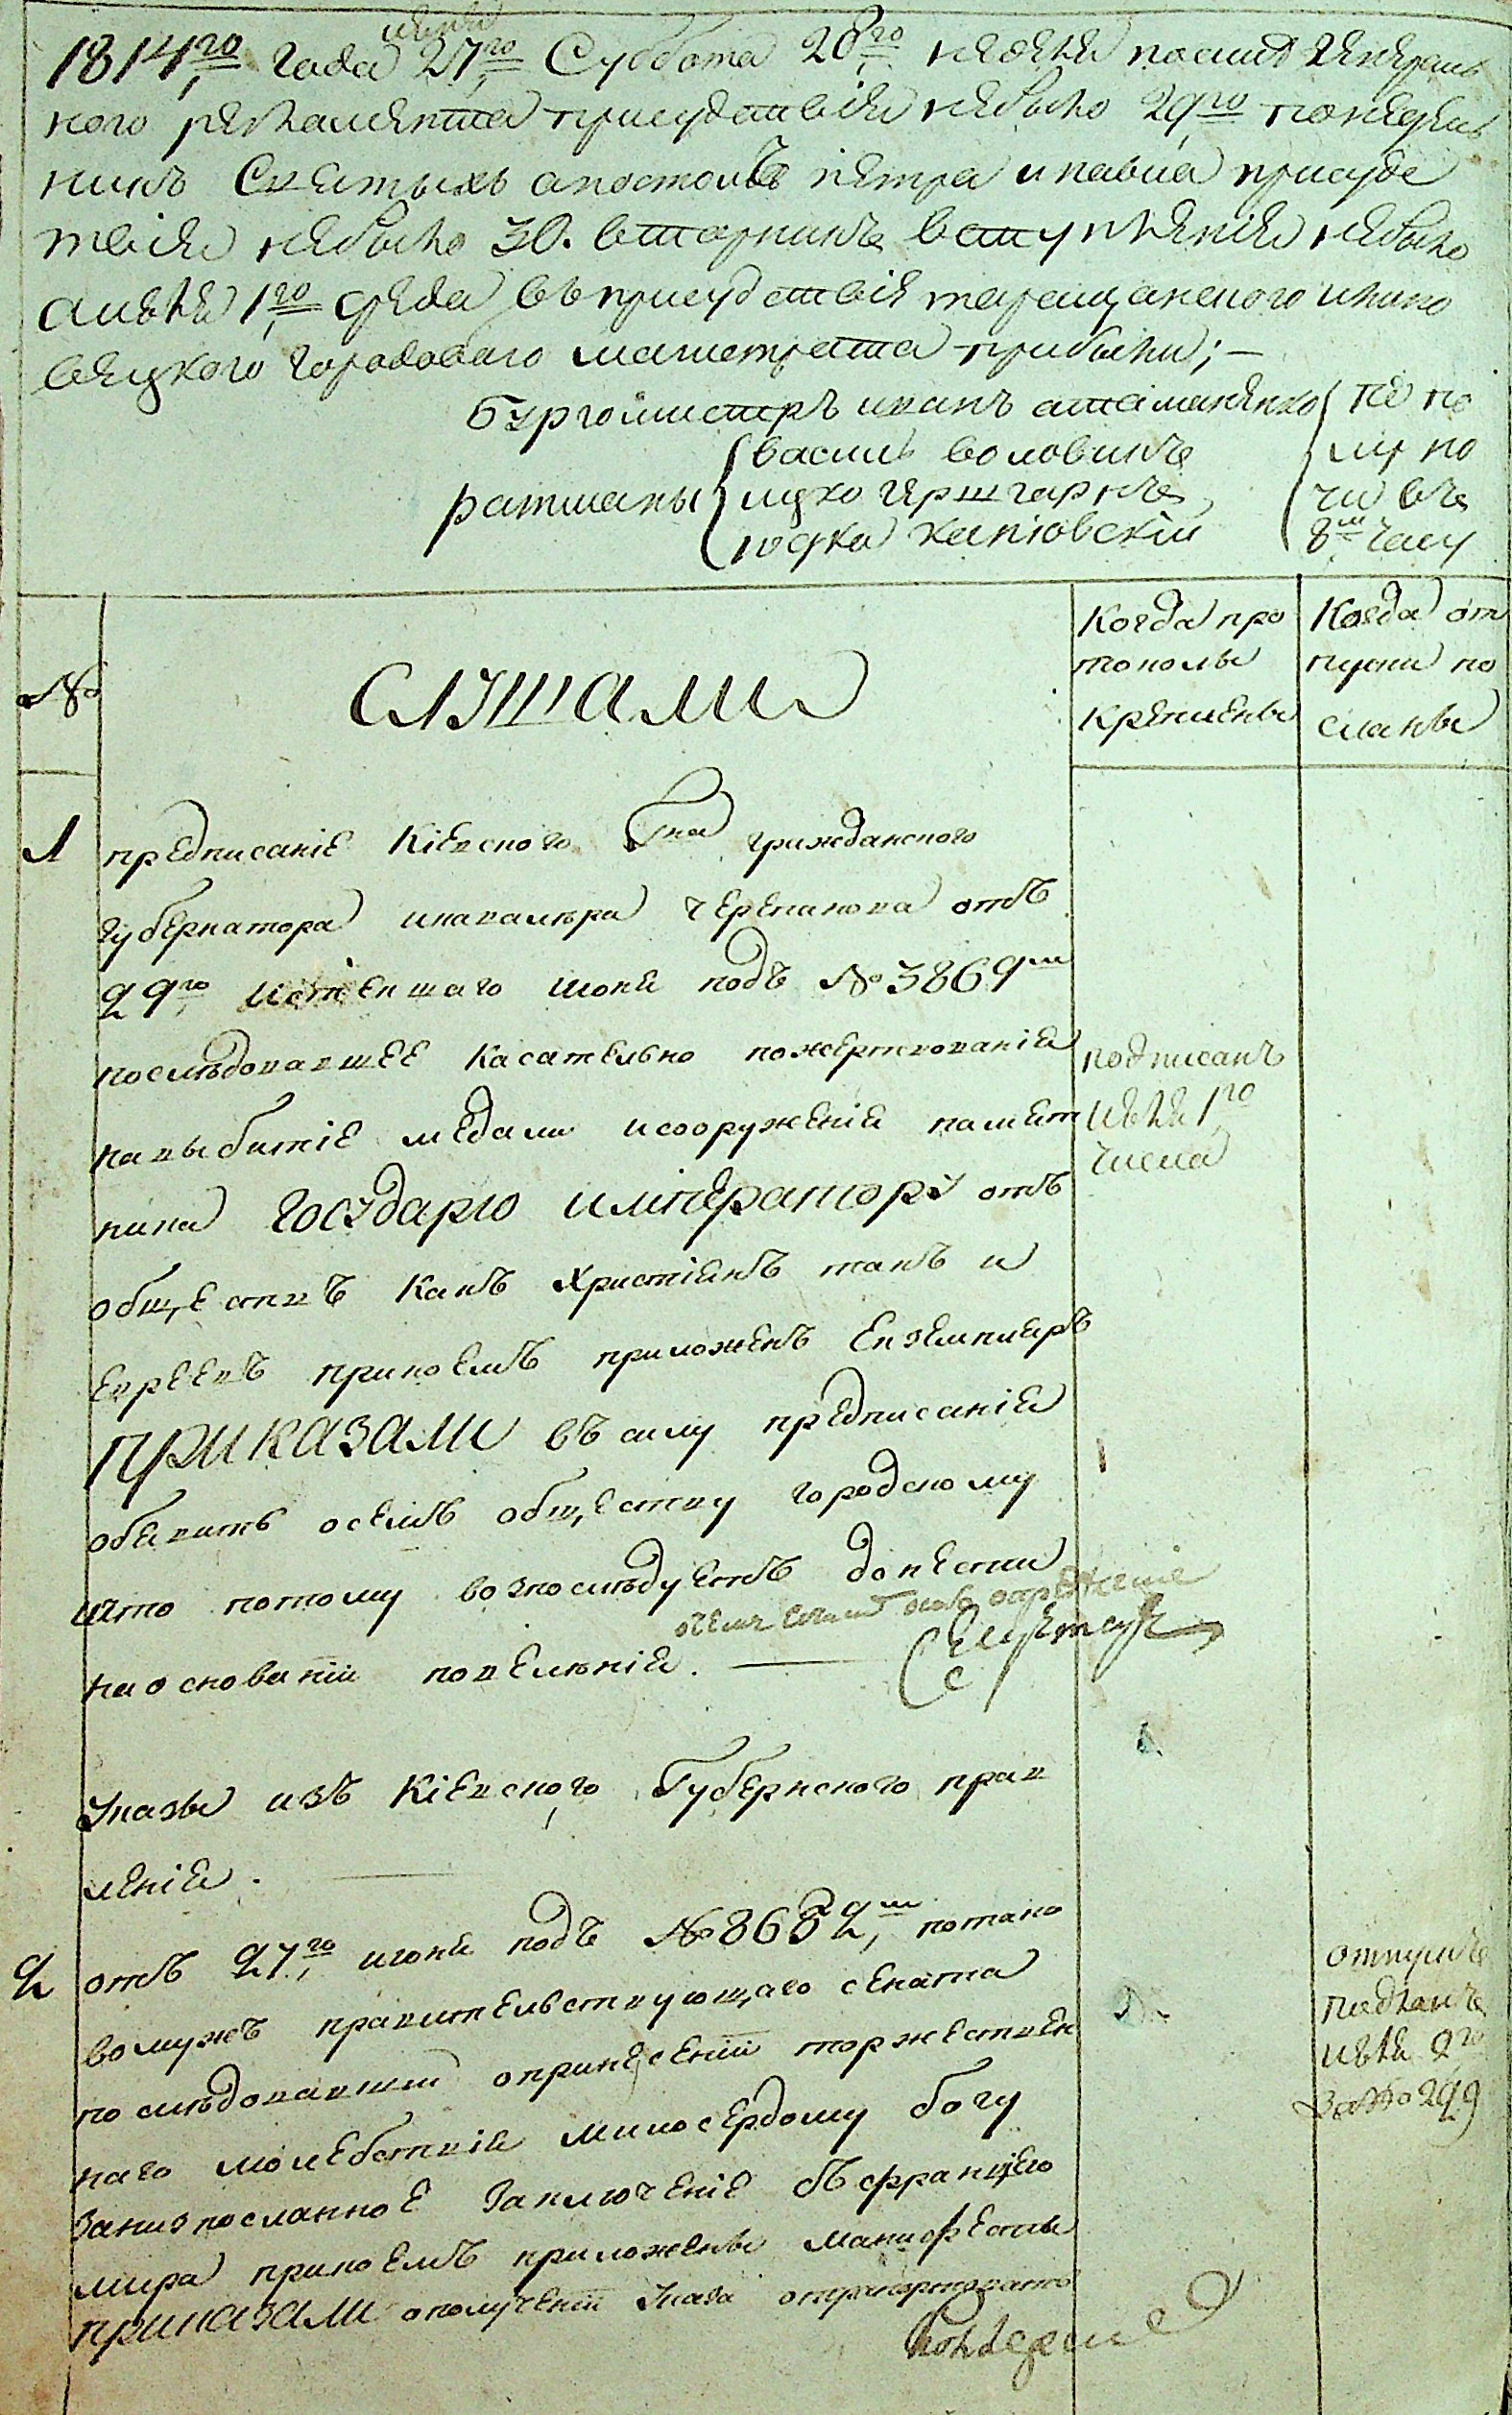 июня
1814го года 27го Суббота 28го неделя посилѣ генераль
ного регламента присудствия небыло 29го понедель
никъ Святыхъ апостолъ петра ипавла присуд
ствия небыло 30. вторникъ вступления небыло
а июля 1го среда въ присудствие таращанского
городоваго магистрата прибыли; —
Бургомистръ иванъ атаманенко
василь воловикъ
ратманы ицко герш
юдка каневскій
по по
лу но
чи въ
8м часу
№
Слушали
Когда про
токолы
крепленны
Когда от
пуски по
сланы
1
предписаніе Кіевского Гна гражданского
губернатора икавалера черепанова отъ
29го истекшаго июня подъ №3869м
последовавшее касательно пожертвования
навыбитіе медали исооружение памят
ника Государю императору отъ
обществъ какъ христіянъ такъ и
евреевъ прикоемъ приложенъ екземпляръ
приказали въ силу предписания
обявить осемъ обществу городскому
ичто потому возпоследуетъ донести
на основаніи повеления. —
подписанъ
июля 1го
числа
Указы изъ Кіевского Губернского прав
ления.
2
отъ 27го июня подъ №8682м, потако
вомужъ правительствующаго сената
последовавшій опринесеніи торжествен
наго молебствия милосердому богу
заниспосланное заключеніе съ францією
мира прикоемъ приложены манифесты
приказали ополученіи указа отрапортовать
отпускъ
подланъ
июля 2го
за№299